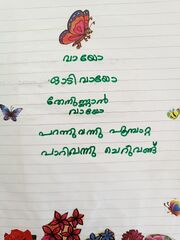 വായോ
ഓടിവായോ
തേനുണ്ണാൻ
വായോ
പറന്നുവന്നു പൂമ്പാറ്റ
പാറിവന്നു ചെറുവണ്ട്